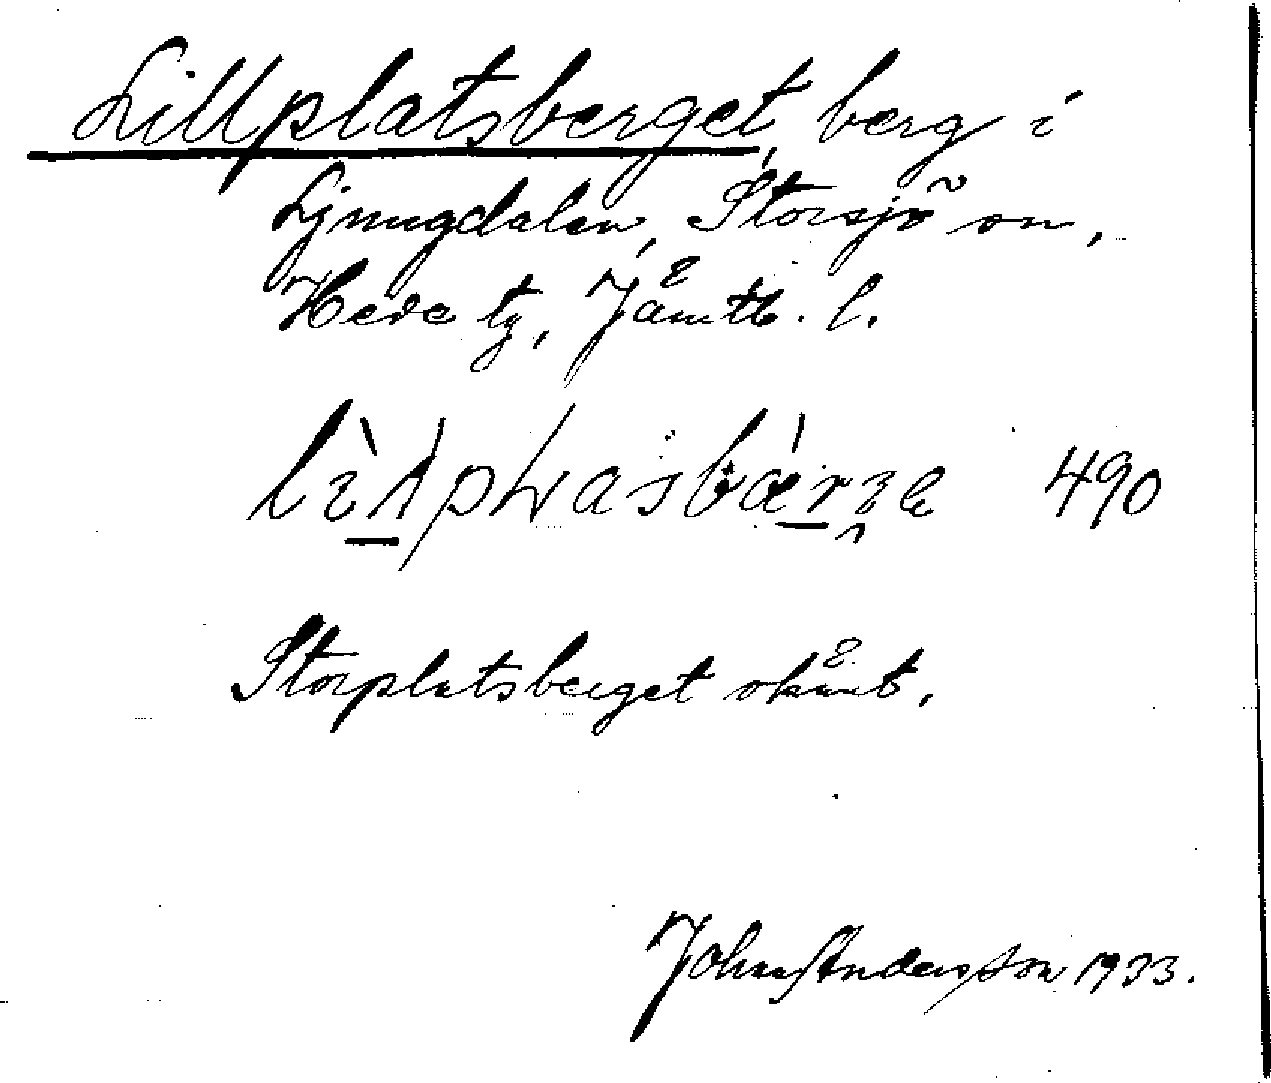 Lillplatsberget, berg i
Ljungdalen, Storsjö sn,
Hede tg, Jämtl. l.
490
Storplatsberget okänt.
John Andersson 1933.